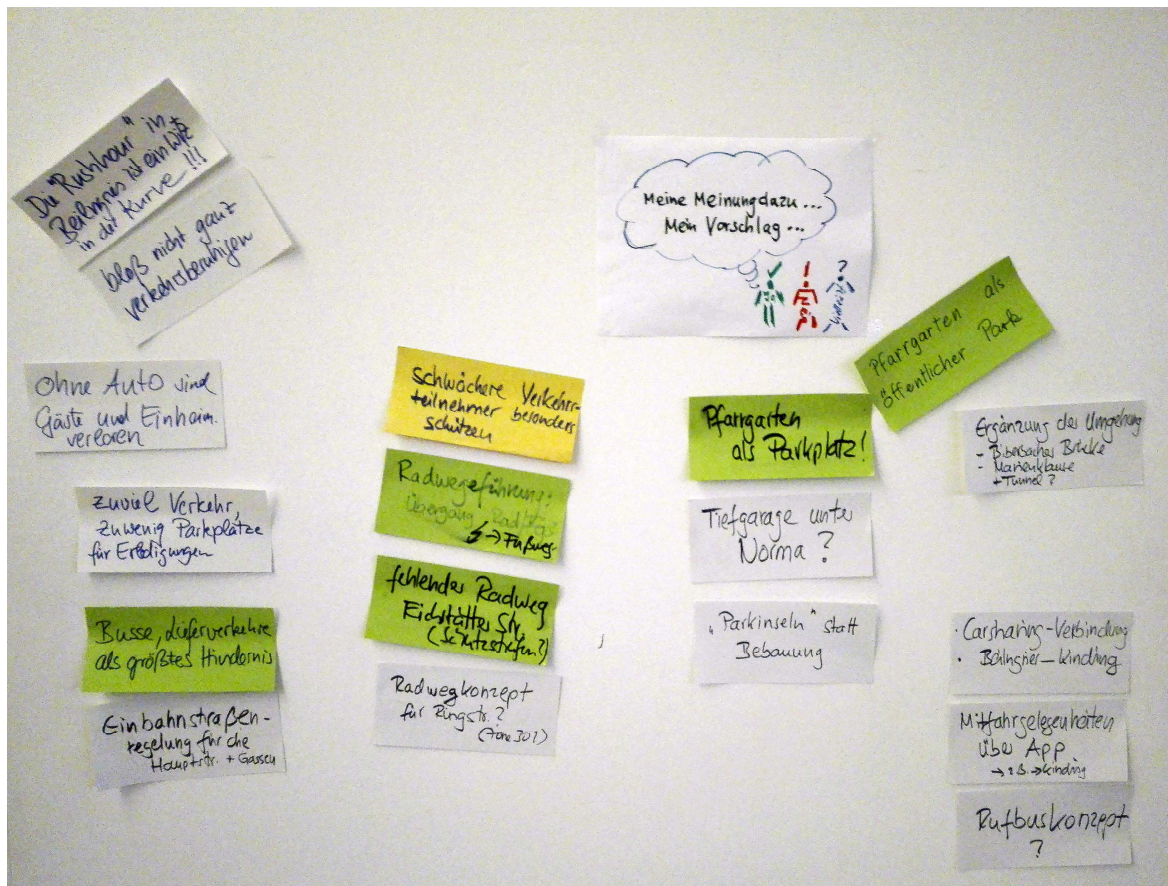 Die "Rushhour" in
Beilngries ist ein Witz
in der Kurve!!!
bloß nicht ganz
verkehrsberuhigen
Ohne Auto sind
Gäste und Einheim.
verloren
zuviel Verkehr,
zuwenig Parkplätze
für Erledigungen
Busse, Lieferverkehre
als größtes Hindernis
Einbahnstraßen-
regelung für die
Hauptstr. + Gassen
schwächere Verkehrs-
teilnehmer besonders
schützen
Radwegeführung:
Übergang
→ Fußweg
fehlender Radweg
Eichstätter Str.
(Schutzstreifen?)
Radwegkonzept
für Ringstr.?
(Zone 30?)
Meine Meinung dazu ...
Mein Vorschlag ...
?
Pfarrgarten als
öffentlicher Park
Pfarrgarten
als Parkplatz!
Tiefgarage unter
Norma?
„Parkinseln" statt
Bebauung
Ergänzung der Umgehung
- Biberbacher Brücke
- Marienklause
+ Tunnel?
· Carsharing-Verbindung
· Beilngries – Kinding
Mitfahrgelegenheiten
über App
→ z.B. → Kinding
Rufbuskonzept
?